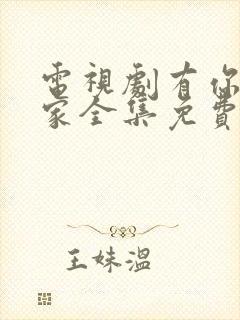 電視劇有你
家全集免費
王妹溫